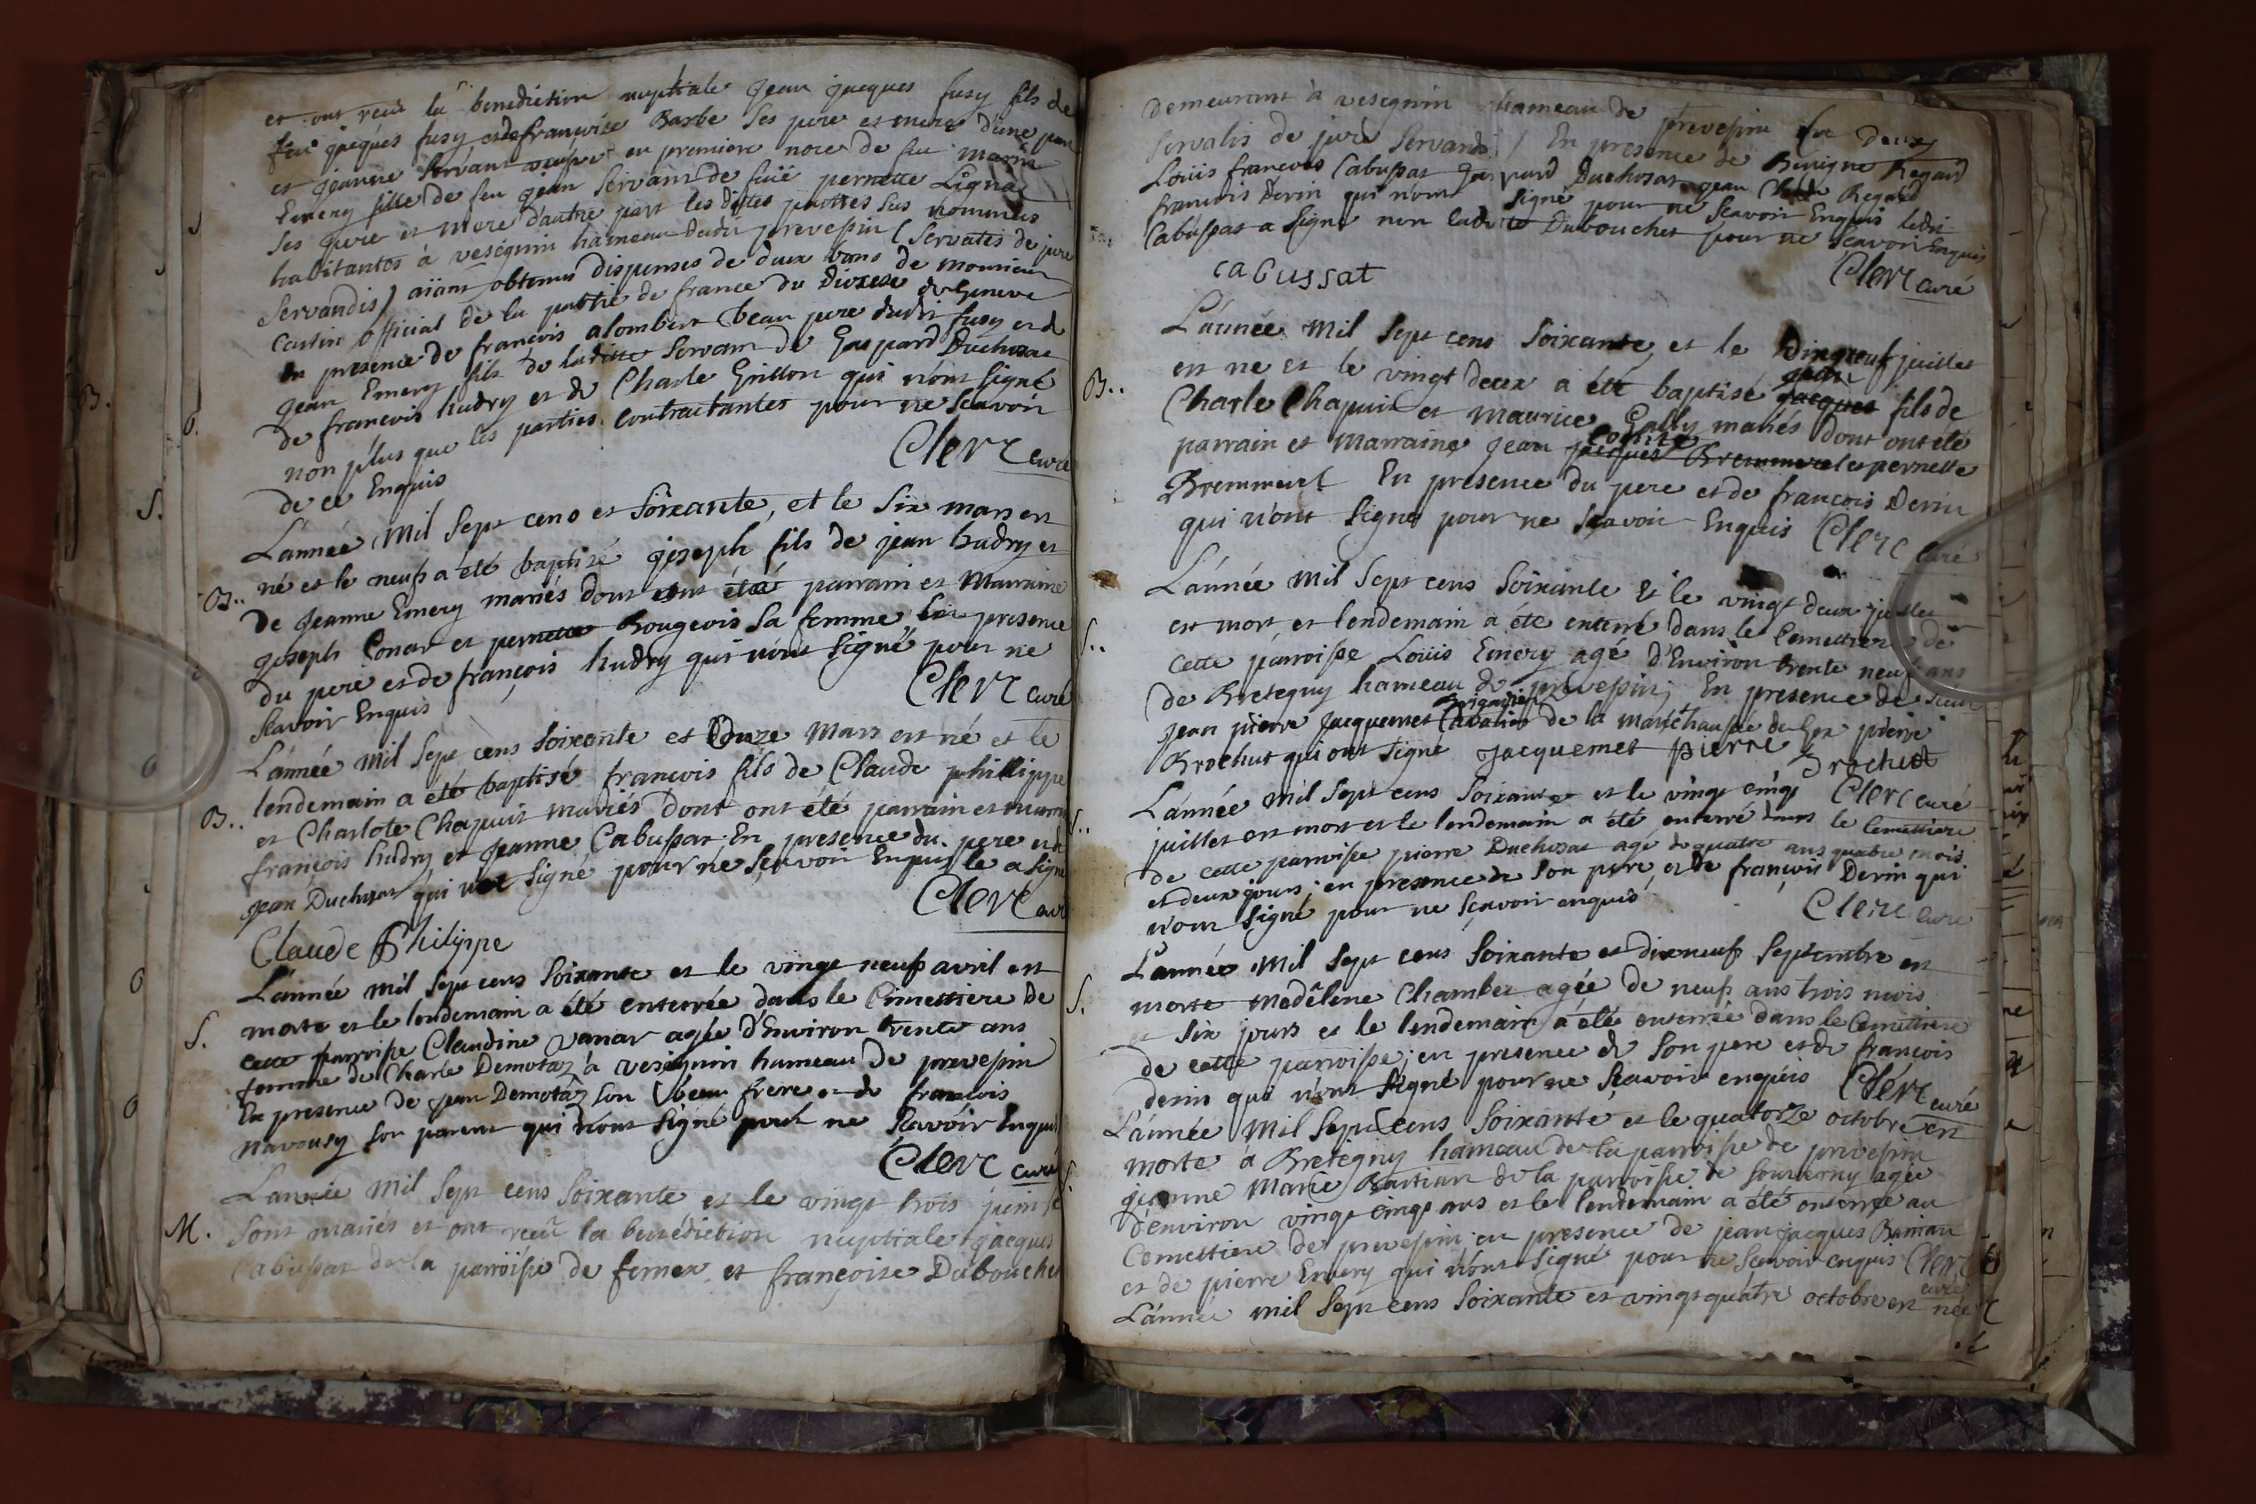 et ont reçu la benediction nuptiale jean jacques fusy fils de
feu jacques fusy et de françoise Barbe ses pere et mere d'une part
et jeanne servant veuve en premiere noce de feu marin
Emery fille de feu jean servant de fuië pernette Ligna
ses pere et mere d'autre part les dites parties sus nommées
habitantes à vesegnin hameau dudit prevessin (servatis de jure
servandis) aiant obtenus dispenses de deux bans de monsieur
Castin official de la partie de france du Diocese de Geneve
En presence de francois alombert beau pere dudit fusy et de
jean Emery fils de ladite servant de Gaspard Duchosat
de francois hudry et de Charle Grillon qui n'ont signé
non plus que les parties contractantes pour ne scavoir
de ce Enquis Clerc curé
L'année Mil sept cens et soixante, et le six mars est
B.. né et le neuf a été baptisé joseph fils de jean hudry et
De jeanne Emery mariés dont ont été parrain et Marraine
joseph Conar et pernette Bougeois sa femme, En presence
du pere et de françois hudry qui n'ont signé pour ne
scavoir Enquis Clerc curé
L'année Mil sept cens soixante et Onze Mars est né et le
B.. lendemain a été baptisé francois fils de Claude phillippe
et Charlote Chapuis mariés dont ont été parrain et marraine
françois hudry et jeanne Cabussat. En presence du pere et de
jean Duchosat qui n'ont signé pour ne scavoir Enquis le a signé
Clerc curé
Claude Philippe
L'année mil sept cens soixante et le vingt neuf avril est
S. morte et le lendemain a été enterrée dans le Cimettiere de
cette parroisse Claudine vanar agée d'Environ trente ans
femme de Charle Demotaz à vesegnin hameau de prevessin
En presence de jean Demotaz son beau frere et de francois
navousy son parent qui n'ont signé pour ne scavoir Enquis
Clerc curé
L'année Mil sept cens soixante et le vingt trois juin se
M. sont mariés et ont reçu la benédiction nuptiale jacques
Cabussat de la parroisse de fernex et françoise Dubouchet
Demeurant à vesegnin hameau de prevessin
servatis de jure servandis) En presence de Benigne Regard
Louis francois Cabussat Gaspard Duchosat jean Regard
francois Derin qui n'ont signé pour ne scavoir Enquis ledit
Cabussat a signé non ladite Dubouchet pour ne scavoir Enquis
cabussat Clerc curé
L'année Mil sept cens soixante, et le juillet
B.. est né et le vingt deux a été baptisé jean jacques fils de
Charle Chapuis et maurice Gally mariés dont ont été
parrain et marraine jean jacques Bremmerel et pernette
Bremmerel En presence du pere et de francois Derin
qui n'ont signé pour ne scavoir Enquis Clerc curé
L'année Mil sept cens soixante Et le vingt deux juillet
S.. est mort et lendemain a été enterré dans le Cemettiere de
cette parroisse Louis Emery agé d'Environ trente neuf ans
de Bretegny hameau de prevessin, En presence de sieur
Brigadier
jean pierre jacquemet Cavalier de la maréchaussée de Gex pierre
Brochut qui ont signé jacquemet pierre Brochut
L'année mil sept cens soixante et le vingt cinq Clerc curé
S.. juillet est mort et le lendemain a été enterré dans le Cemettiere
de cette parroisse pierre Duchosat agé de quatre ans quatre mois
et deux jours en presence de son pere, et de françois Derin qui
n'ont signé pour ne scavoir enquis Clerc curé
L'année Mil sept cens soixante et dixneuf septembre est
S. morte Madêlene Chamber agée de neuf ans trois mois
et six jours et le lendemain a été enterrée dans le Cemettiere
de cette parroisse en presence de son pere et de francois
derin qui n'ont signé pour ne scavoir enquis Clerc curé
L'année Mil sept cens soixante et le quatorze octobre est
S. morte à Bretegny hameau de la parroisse de prevessin
jeanne Marie Bastian de la parroisse de souverny agée
d'environ vingt cinq ans et le lendemain a été enterrée au
Cemettiere de prevessin en presence de jean jacques Bastian
et de pierre Emery qui n'ont signé pour ne scavoir enquis Clerc
curé
L'année mil sept cens soixante et vingt quatre octobre est née